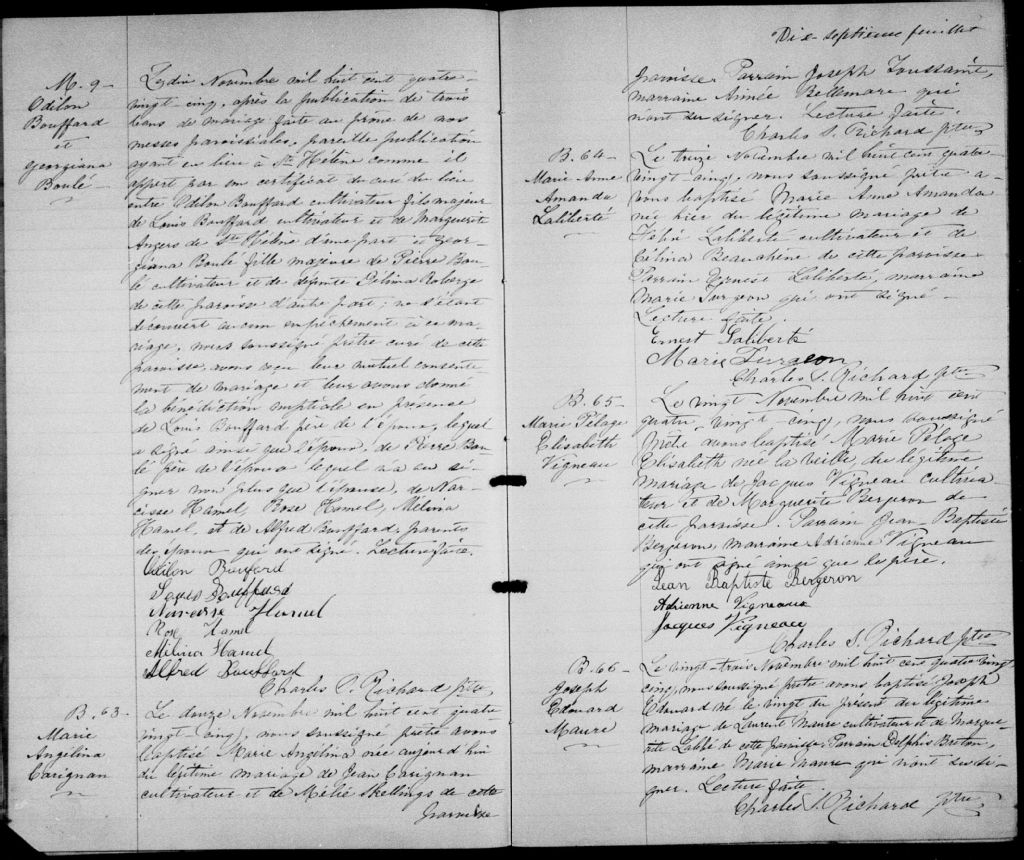 M. 9-
Odilon
Bouffard
et
Georgiana
Boulé-
Le dix Novembre mil huit cent quatre-
vingt-cinq, après la publication de trois
bans de mariage faite au prone de nos
messes paroissiales, pareille publication
ayant eu lieu à Ste Hélène comme il
appert par un certificat du curé du lieu
entre Odilon Bouffard cultivateur fils majeur
de Louis Bouffard cultivateur et de Marguerit
Angers de Ste Hélène d'une part et Geor-
giana Boulé fille majeure de Pierre Bou-
lé cultivateur et de défunte Délina Roberge
de cette paroisse d'autre part; ne s'étant
découvert aucun empêchement à ce ma-
riage, nous soussigné prêtre curé de cette
paroisse, avons reçu leur mutuel consente-
ment de mariage et leur avons donné
la bénédiction nuptiale en présence
de Louis Bouffard père de l'époux, lequel
a signé ainsi que l'époux, de Pierre Bou-
lé père de l'épouse lequel n'a su si-
gner non plus que l'épouse, de Nar-
cisse Hamel, Rose Hamel, Mélina
Hamel, et de Alfred Bouffard, parents
des époux qui ont signé. Lecture faite.
Odilon Bouffard
Louis Bouffard
Narcisse Hamel
Rose Hamel
Mélina Hamel
Alfred Bouffard
Charles S. Richard ptre
B. 63-
Marie
Angélina
Carignan
Le douze Novembre mil huit cent quatre
vingt-cinq, nous soussigné prêtre avons
baptisé Marie Angélina née aujourd'hui
du légitime mariage de Jean Carignan
cultivateur et de Mélie Skellings de cette
paroisse
Dix-septième feuillet
paroisse. Parrain Joseph Toussaint,
marraine Aimée Bellmare qui
n'ont su signer. Lecture faite.
Charles S. Richard ptre
B. 64-
Marie Anne
Amanda
Laliberté
Le treize Novembre mil huit cent quatre-
vingt cinq, nous soussigné prêtre a-
vons baptisé Marie Anne Amanda
née hier du légitime mariage de
Laliberté cultivateur et de
Célina Beauchène de cette paroisse-
Parrain Ernest Laliberté, marraine
Marie Turgeon qui ont signé-
Lecture faite.
Ernest Laliberté
Marie Turgeon
Charles S. Richard ptre
B. 65-
Marie Pélage
Elisabeth
Vigneau
Le vingt Novembre mil huit cent
quatre-vingt cinq, nous soussigné
prêtre avons baptisé Marie Pélage
Elisabeth née la veille, du légitime
mariage de Jacques Vigneau cultiva-
teur et de Marguerite Bergeron de
cette paroisse. Parrain Jean-Baptiste
Bergeron, marraine Adrienne Vigneau
qui ont signé ainsi que le père.
Jean Baptiste Bergeron
Adrienne Vigneaux
Jacques Vigneau
Charles S. Richard ptre
B. 66-
Joseph
Edouard
Maure
Le vingt-trois Novembre mil huit cent quatre vingt
cinq, nous soussigné prêtre avons baptisé Joseph
Edouard né le vingt du présent du légitime
mariage de Laurent Maure cultivateur et de Margue-
rite Labbé de cette paroisse. Parrain Delphis Breton,
marraine Marie Maure qui n'ont su si-
gner. Lecture faite.
Charles S. Richard ptre